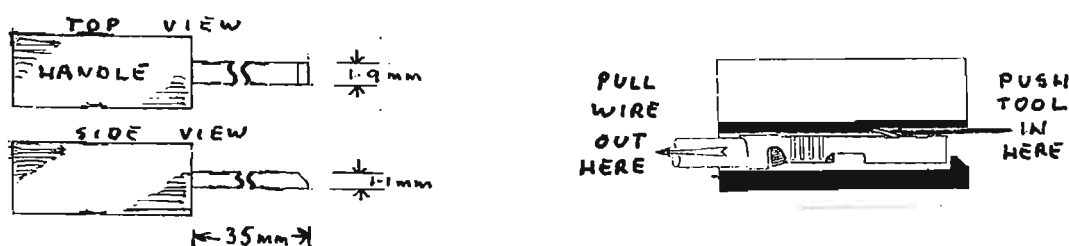 TOP VIEW
HANDLE
1.9 mm
SIDE VIEW
1.1 mm
35mm
PULL
WIRE
OUT
HERE
PUSH
TOOL
IN
HERE